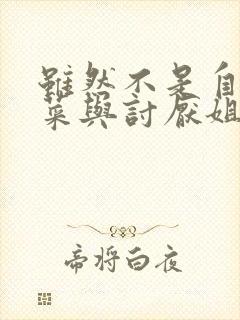 雖然不是自
菜與討厭姐
帝將白夜